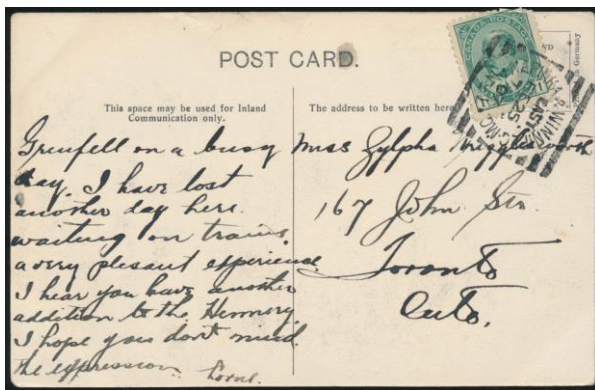 POST CARD.
This space may be used for Inland
Communication only.
The address to be written here
Germany
CANADA POSTAGE
EAST
Grenfell on a busy
day. I have lost
another day here.
waiting on trains.
a very plesant experience
I hear you have another
addition to the Hennery.
I hope you don't mind
the expression.
Lorne.
Miss Zylpha
167 John Str.
Toronto
Ont.